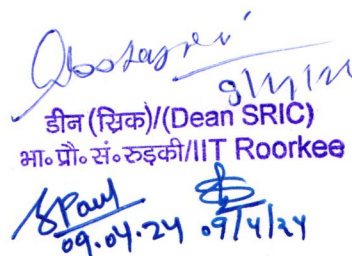 डीन (स्रिक)/(Dean SRIC)
भा॰ प्रौ॰ सं॰ रुड़की/IIT Roorkee
SPaul
09.04.24 09/4/24